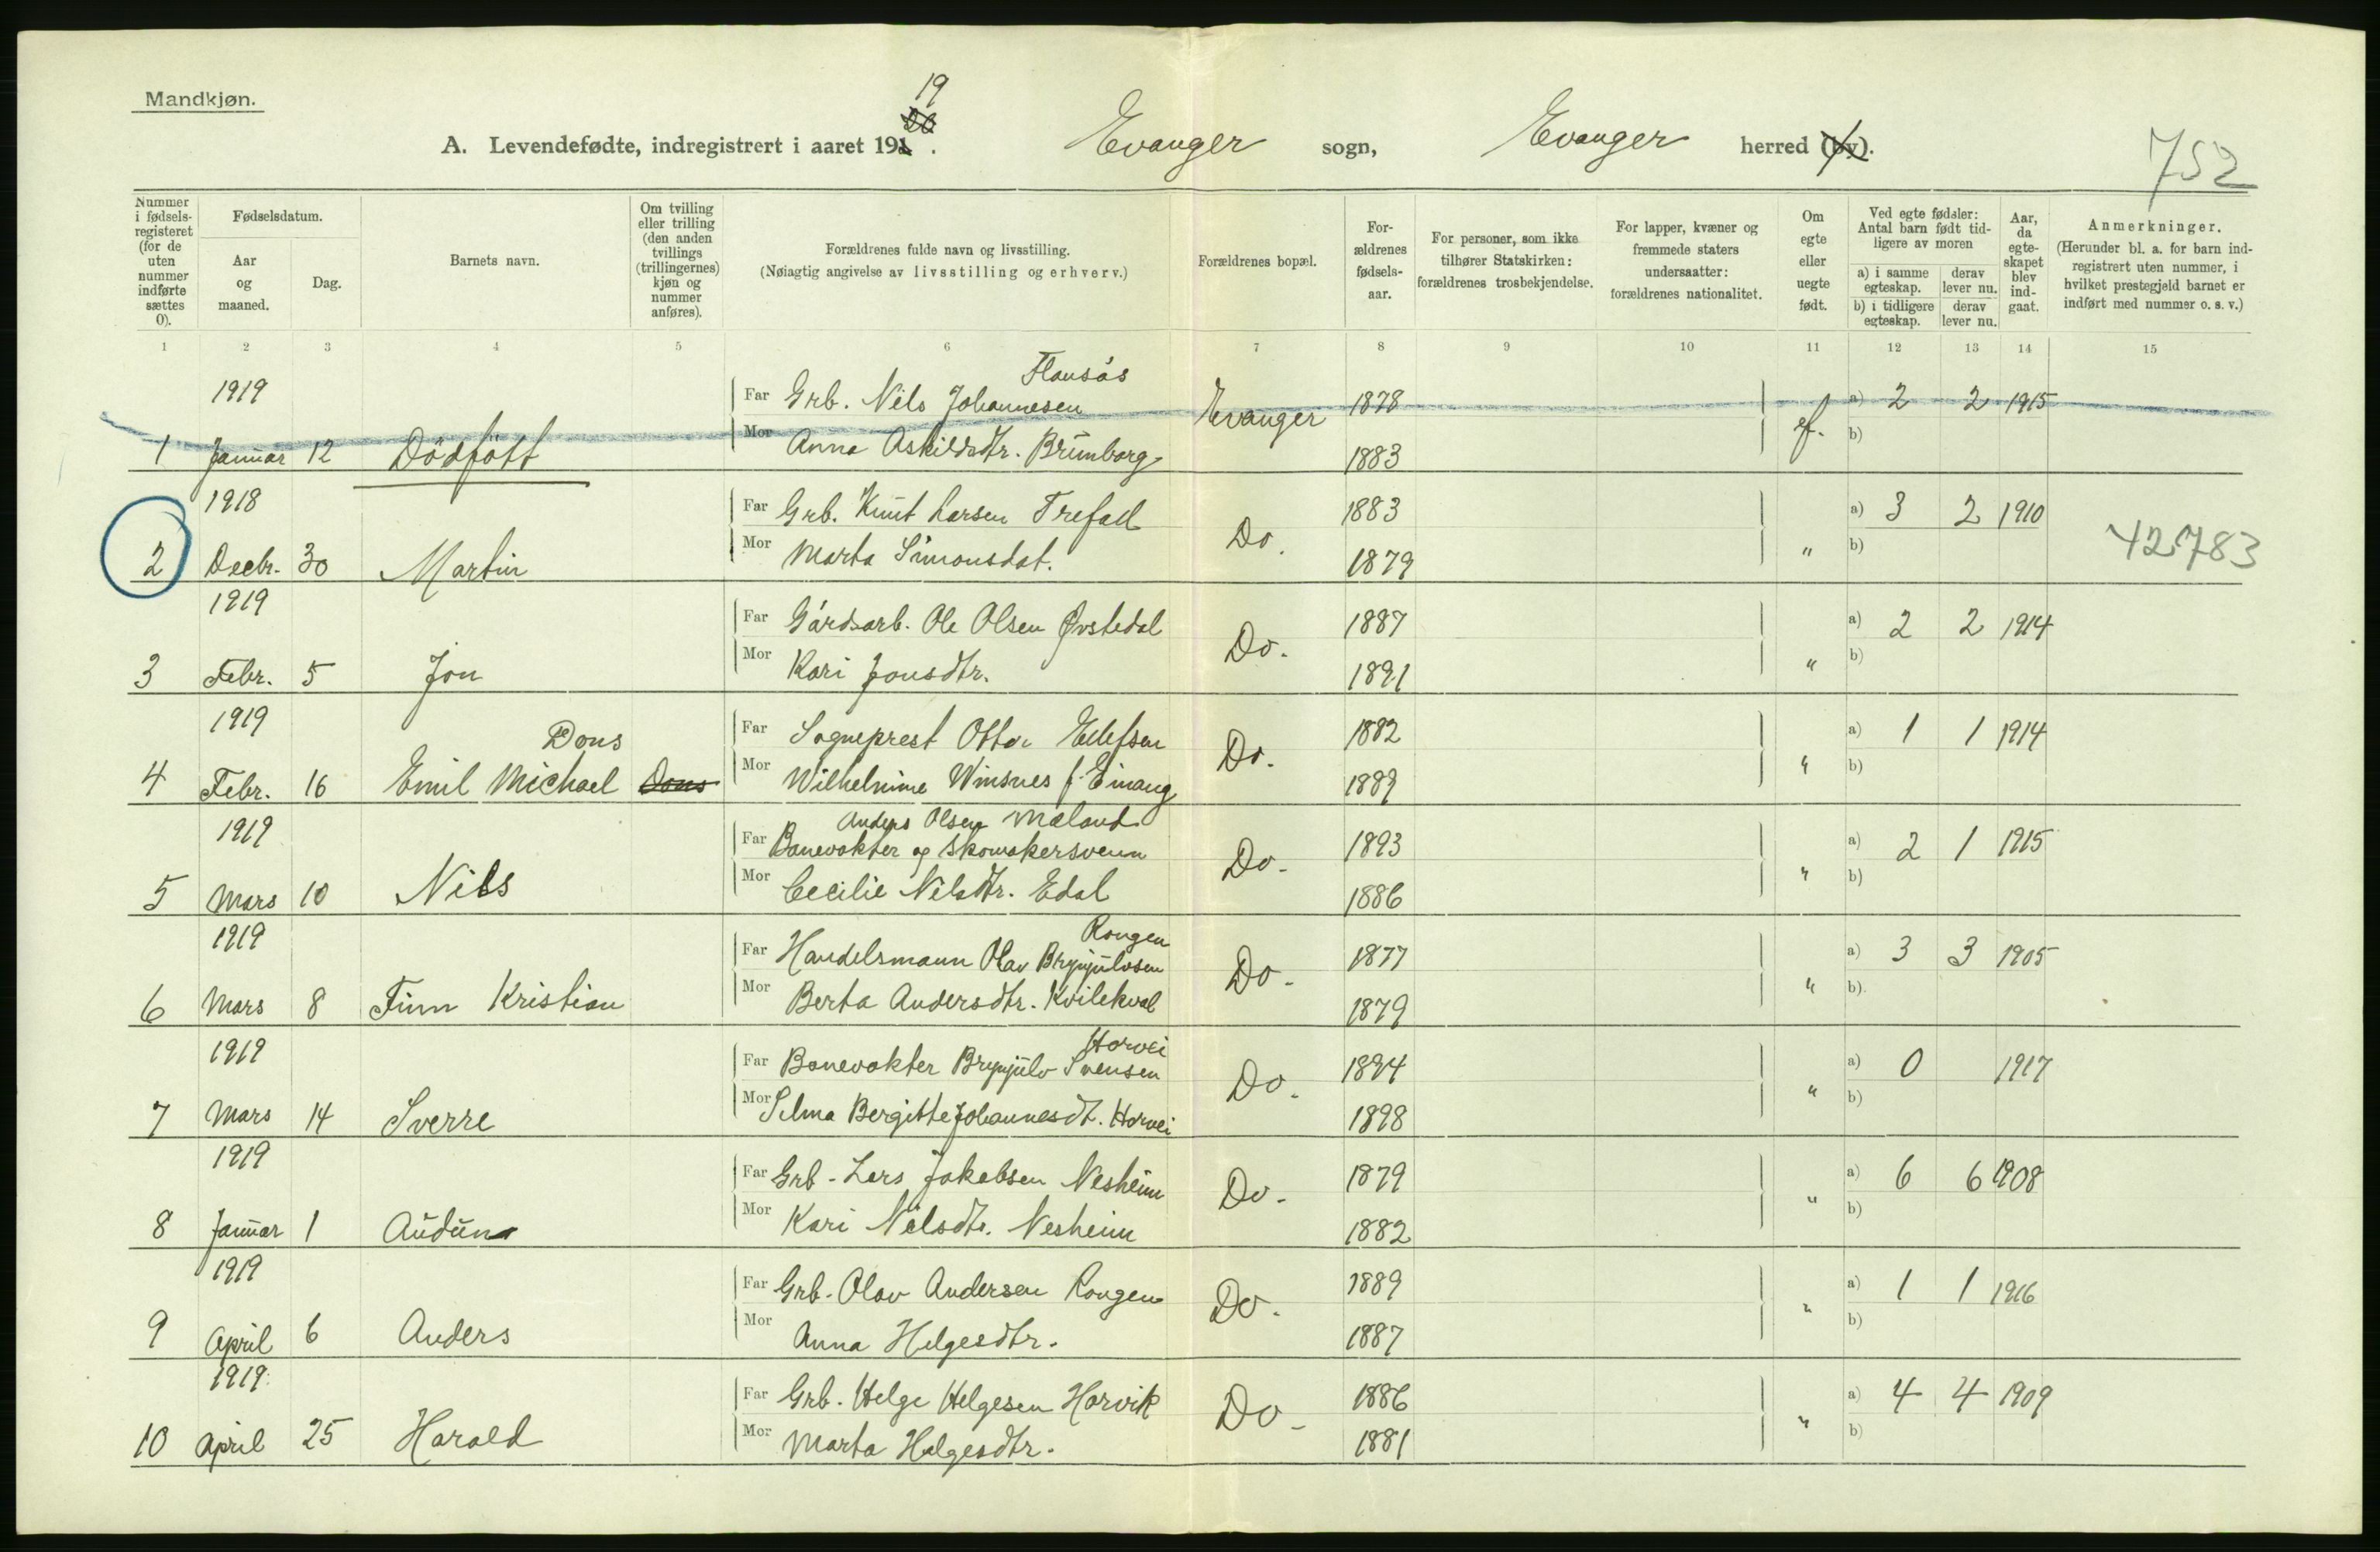 Mandkjøn.
19
20
A. Levendefødte, indregistrert i aaret 191 . Evanger sogn, Evanger herred (by).
752
Nummer i fødselsregisteret (for de uten nummer indførte sættes 0).
Fødselsdatum.
Aar og maaned.
Dag.
Barnets navn.
Om tvilling eller trilling (den anden tvillings (trillingernes) kjøn og nummer anføres).
Forældrenes fulde navn og livsstilling.
(Nøiagtig angivelse av livsstilling og erhverv.)
Forældrenes bopæl.
Forældrenes fødselsaar.
For personer, som ikke tilhører Statskirken: forældrenes trosbekjendelse.
For lapper, kvæner og fremmede staters undersaatter: forældrenes nationalitet.
Om egte eller uegte født.
Ved egte fødsler: Antal barn født tidligere av moren
a) i samme egteskap. derav lever nu.
b) i tidligere egteskap. derav lever nu.
Aar, da egteskapet blev indgaat.
Anmerkninger.
(Herunder bl. a. for barn indregistrert uten nummer, i hvilket prestegjeld barnet er indført med nummer o. s. v.)
1 2 3 4 5 6 7 8 9 10 11 12 13 14 15
Flansås
1919 Far Grb. Nils Johannesen Evanger 1878 a) 2 2 1915
1 Januar 12 Dödfött Mor Anna Askildsdtr. Brunborg 1883 ef. b)
1918 Far Grb. Knut Larsen Trefall Do. 1883 a) 3 2 1910
2 Decbr. 30 Martin Mor Marta Simonsdat. 1879 " b) 42783
1919 Far Gårdsarb. Ole Olsen Øvstedal Do. 1887 a) 2 2 1914
3 Febr. 5 Jon Mor Kari Jonsdtr. 1891 " b)
1919 Dons Far Sogneprest Otto Ellefsen Do. 1882 a) 1 1 1914
4 Febr. 16 Emil Michael Dons Mor Wilhelmine Winsnes f. Einang 1889 " b)
Anders Olsen Mæland
1919 Far Banevokter og skomakersvenn Do. 1893 a) 2 1 1915
5 Mars 10 Nils Mor Cecilie Nilsdtr. Edal 1886 " b)
Rongen
1919 Far Handelsmann Olav Brynjulvsen Do. 1877 a) 3 3 1905
6 Mars 8 Finn Kristian Mor Berta Andersdtr. Kvilekval 1879 " b)
Horvei
1919 Far Banevokter Brynjulv Svensen Do. 1894 a) 0 1917
7 Mars 14 Sverre Mor Selma Bergitte Johannesdt. Horvei 1898 " b)
1919 Far Grb. Lars Jakobsen Nesheim Do. 1879 a) 6 6 1908
8 Januar 1 Audun Mor Kari Nilsdtr. Nesheim 1882 " b)
1919 Far Grb. Olav Andersen Rongen Do. 1889 a) 1 1 1916
9 April 6 Anders Mor Anna Helgesdtr. 1887 " b)
1919 Far Grb. Helge Helgesen Horvik Do. 1886 a) 4 4 1909
10 April 25 Harald Mor Marta Helgesdtr. 1881 " b)